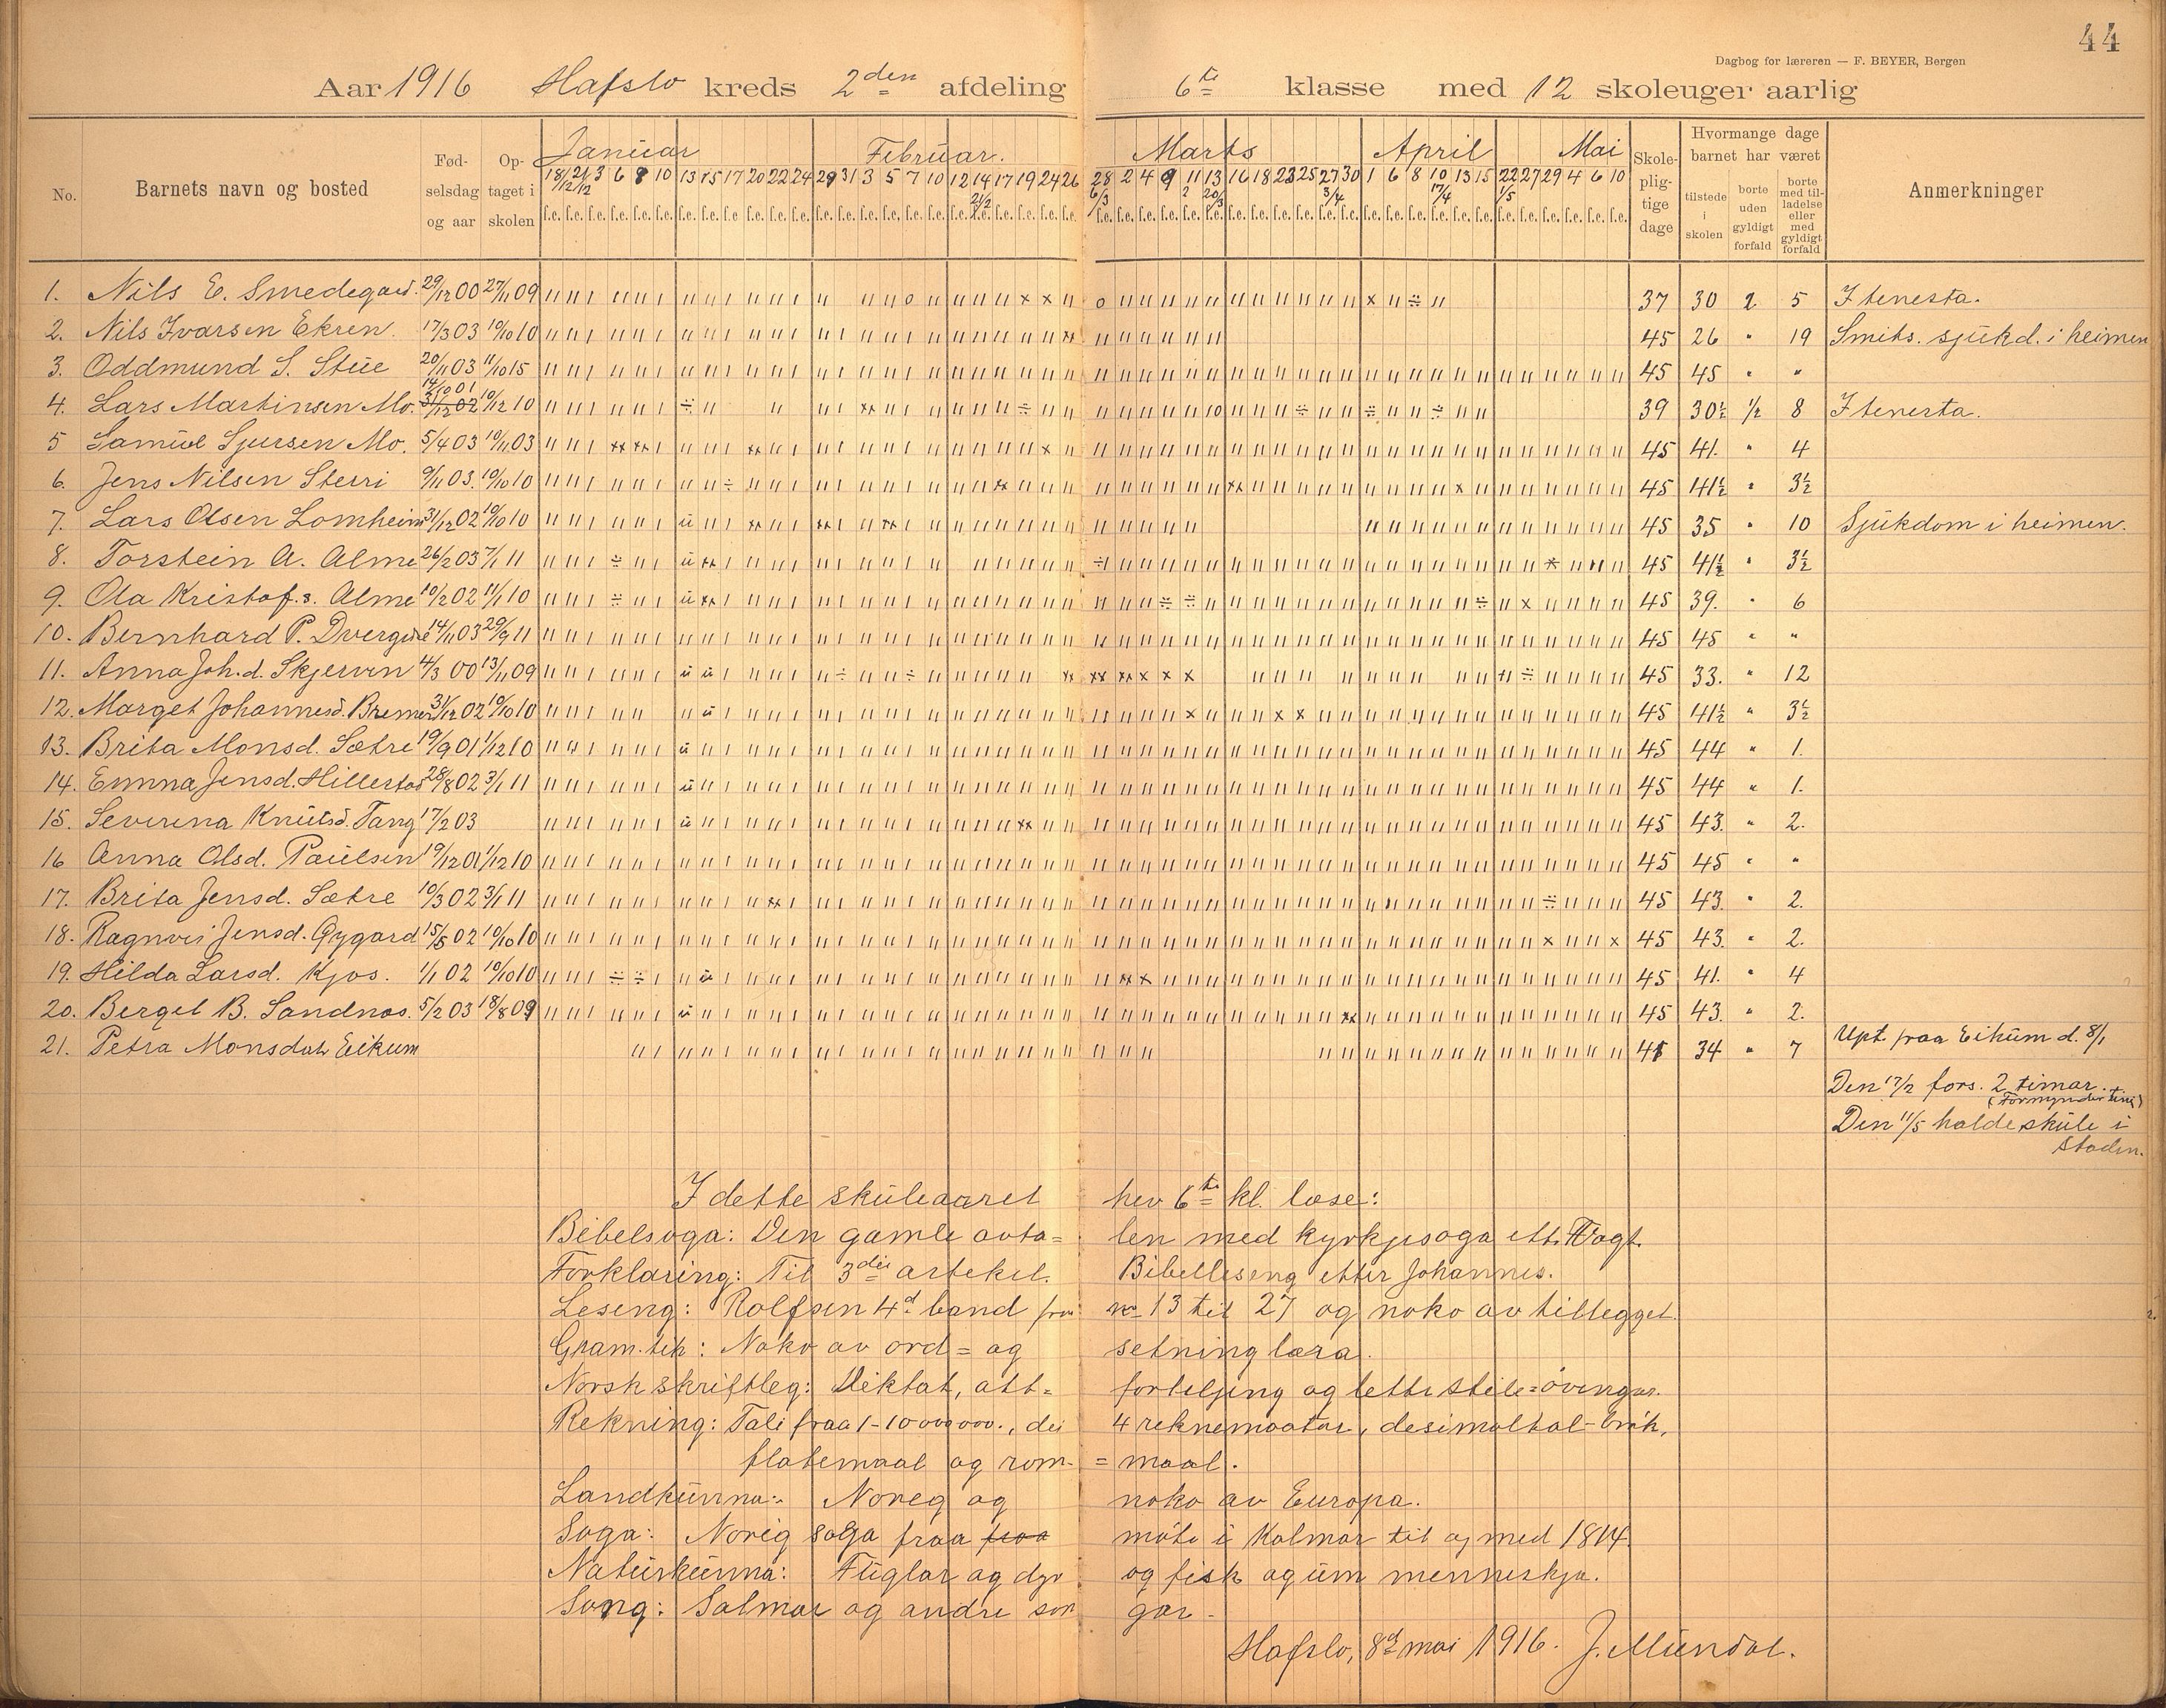 44
Dagbog for læreren — F. BEYER, Bergen
Aar 1916 Hafslo kreds 2den afdeling 6te klasse med 12 skoleuger aarlig
No. Barnets navn og bosted Fød-selsdag og aar Op-taget i skolen Januar Februar. Marts April Mai Skole-plig-tige dage Hvormange dage barnet har været Anmerkninger
tilstede i skolen borte uden gyldigt forfald borte med til-ladelse eller med gyldigt forfald
1. Nils E. Smedegard. 29/12 00 27/11 09 37 30 2 5 I tenesta.
2. Nils Ivarsen Ekren. 17/3 03 10/10 10 45 26 " 19 Smits. sjukd. i heimen
3. Oddmund S. Stue 20/11 03 11/10 15 45 45 " "
4. Lars Martinsen Mo. 14/10 01 31/12 02 10/12 10 39 30½ ½ 8 I tenesta.
5 Samuel Sjursen Mo. 5/4 03 10/11 03 45 41. " 4
6. Jens Nilsen Sterri 9/11 03. 10/10 10 45 41½ " 3½
7. Lars Olsen Lomheim 31/12 02 10/10 10 45 35 " 10 Sjukdom i heimen.
8. Torstein A. Alme 26/2 03 7/1 11 45 41½ " 3½
9. Ola Kristof.s. Alme 10/2 02 11/1 10 45 39. " 6
10. Bernhard P. Dvergsde 14/11 03 29/9 11 45 45 " "
11. Anna Joh.d. Skjervin 4/3 00 13/11 09 45 33. " 12
12. Marget Johannesd. Bremer 31/12 02 10/10 10 45 41½ " 3½
13. Brita Monsd. Sætre 19/9 01 1/12 10 45 44 " 1.
14. Emma Jensd. Hillestad 28/8 02 3/1 11 45 44 " 1.
15. Severina Knutsd. Tang 17/2 03 45 43. " 2.
16 Anna Olsd. Paulsen 19/12 01 1/12 10 45 45 " "
17. Brita Jensd. Sætre 10/3 02 3/1 11 45 43. " 2.
18. Ragnvi Jensd. Gygard 15/5 02 10/10 10 45 43. " 2.
19. Hilda Larsd. Kjos. 1/1 02 10/10 10 45 41. " 4
20. Berget B. Sandnæs. 5/2 03 18/8 09 45 43. " 2.
21. Petra Monsdatr Eikum 41 34 " 7 Upt. fraa Eikum d. 8/1
Den 17/2 fors. 2 timar.
(Formyndarting)
Den 11/5 halde skule i
staden.
I dette skuleaaret hev 6te kl. læse:
Bibelsoga: Den gamle avta= len med kyrkjesoga ett. Vogt.
Forklaring: Til 3die artekel. Bibellesing etter Johannes.
Lesing: Rolfsen 4d. band fraa no 13 til 27 og noko av tillegget.
Gram.tik: Noko av ord= og setninglæra.
Norsk skriftleg: Diktat, att= forteljing og lette stile=øvingar.
Rekning: Tali fraa 1-10000000., dei 4 reknemaatar, desimaltal-brøk,
flatemaal og rom- =maal.
Landkunna: Noreg og noko av Europa.
Soga: Norig soga fraa fraa møte i Kalmar til og med 1814.
Naturkunna: Fuglar og dyr og fisk og um menneskja.
Song: Salmar og andre son gar.
Hafslo, 8d mai 1916. J. Mundal.